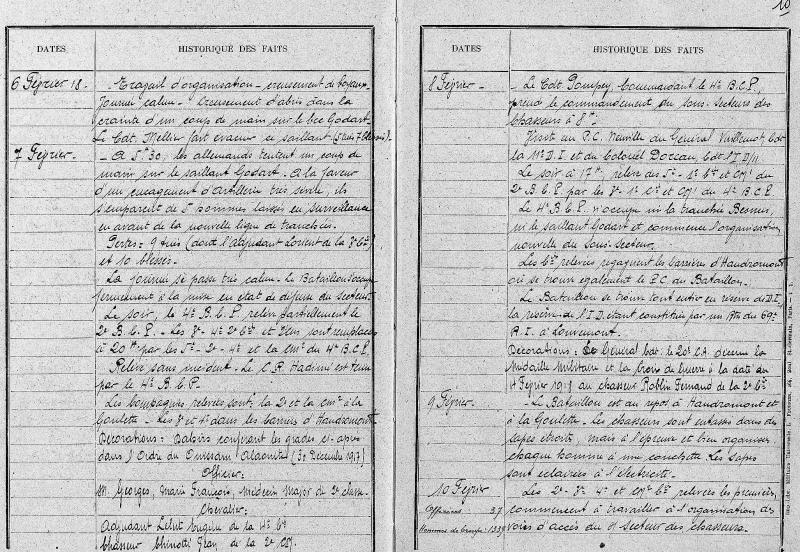 DATES
HISTORIQUE DES FAITS
6 Février 18.
Travail d'organisation – creusement de boyaux
Journée calme – Creusement d'abris dans la
crainte d'un coup de main sur le bec Godart.
Le Cdt. Mellier fait évacuer le saillant
7 Février –
– A 5h30, les allemands tentent un coup de
main sur le saillant Godart. A la faveur
d'un encagement d'artillerie très serré, ils
s'emparent de 5 hommes laissés en surveillance
en avant de la nouvelle ligne de tranchées.
Pertes : 9 tués (dont l'adjudant Lorient de la 3e Cie)
et 10 blessés.
La journée se passe très calme – Le Bataillon s'occupe
fermement à la mise en état de défense du secteur.
Le soir, le 4e B.C.P. relève partiellement le
2e B.C.P. – Les 3e - 4e 2e Cies et sont remplacés
à 20h par les 5e - 2e - 4e et la CM1 du 4e B.C.P.
Relève sans incident – Le C.R. Hadimé est tenu
par le 4e B.C.P.
Les Compagnies relevées sont : la 2e et la CM1 à la
Goulette – Les 3e et 4e dans les carrières d'Haudromont
Décorations : Dahirs conférant les grades ci-après
dans l'Ordre du Ouissam Alaouite (30 Décembre 1917)
Officier :
M. Georges, Marie François, médecin major de 2e classe –
Chevalier :
Adjudant Eugène de la 4e Cie
Chasseur Jean de la 2e Cie
10
DATES
HISTORIQUE DES FAITS
8 Février –
– Le Cdt Pompey, Commandant le 4e B.C.P.,
prend le commandement du sous-secteur des
chasseurs à 8h –
Visite au P.C. Neuville du Général Vuillemot, Cdt
la 11e D.I. et du Colonel Cdt l'I.D/11
Le soir à 17h, relève des 5e - 1e Cies et CM1 du
2e B.C.P. par les 3e - 1e Cies et CM1 du 4e B.C.P.
Le 4e B.C.P. n'occupe ni la tranchée
ni le saillant Godart et commence l'organisation
nouvelle du sous-secteur.
Les Cies relevées regagnent les carrières d'Haudromont
où se trouve également le P.C. du Bataillon.
Le Bataillon se trouve tout entier en réserve de D.I.,
la réserve de l'I.D. étant constituée par un Btn du 69e
R.I. à Louvemont.
Décorations : Le Général Cdt. le 20e C.A. décerne la
Médaille Militaire et la Croix de Guerre à la date du
4 Février 1918 au chasseur Roblin Fernand de la 2e Cie
9 Février –
– Le Bataillon est au repos à Haudromont et
à la Goulette – Les chasseurs sont entassés dans des
sapes étroites, mais à l'épreuve et bien organisées
chaque homme a une couchette. Les sapes
sont éclairées à l'électricité –
10 Février
Les 2e - 3e 4e et CM1 Cies relevées les premières,
commencent à travailler à l'organisation des
voies d'accès du secteur des chasseurs.
Officiers 37
Hommes de troupe : 1339